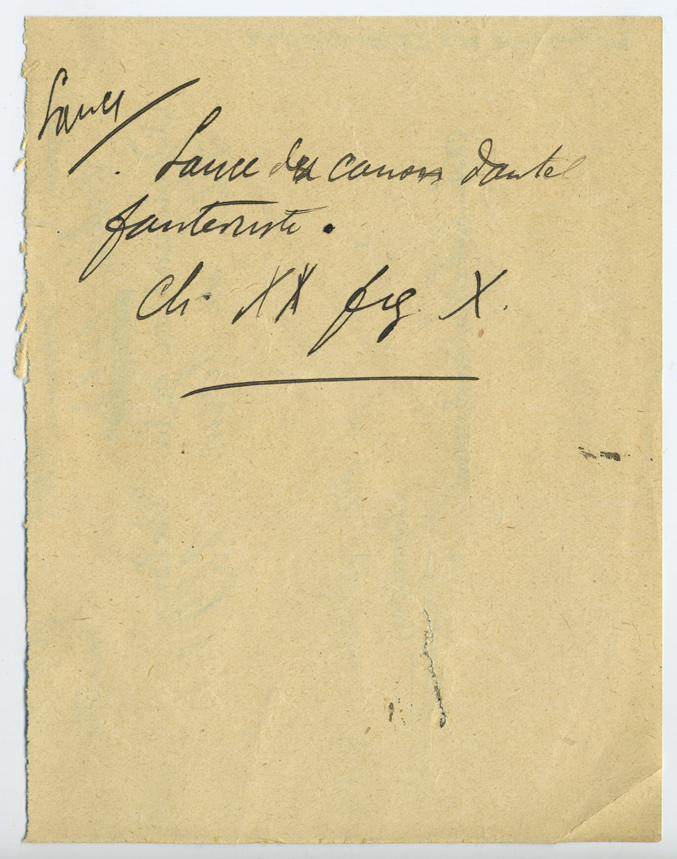 Lance
Lance des canons Dantel
fanteviste.
Ch. XX fig. X.